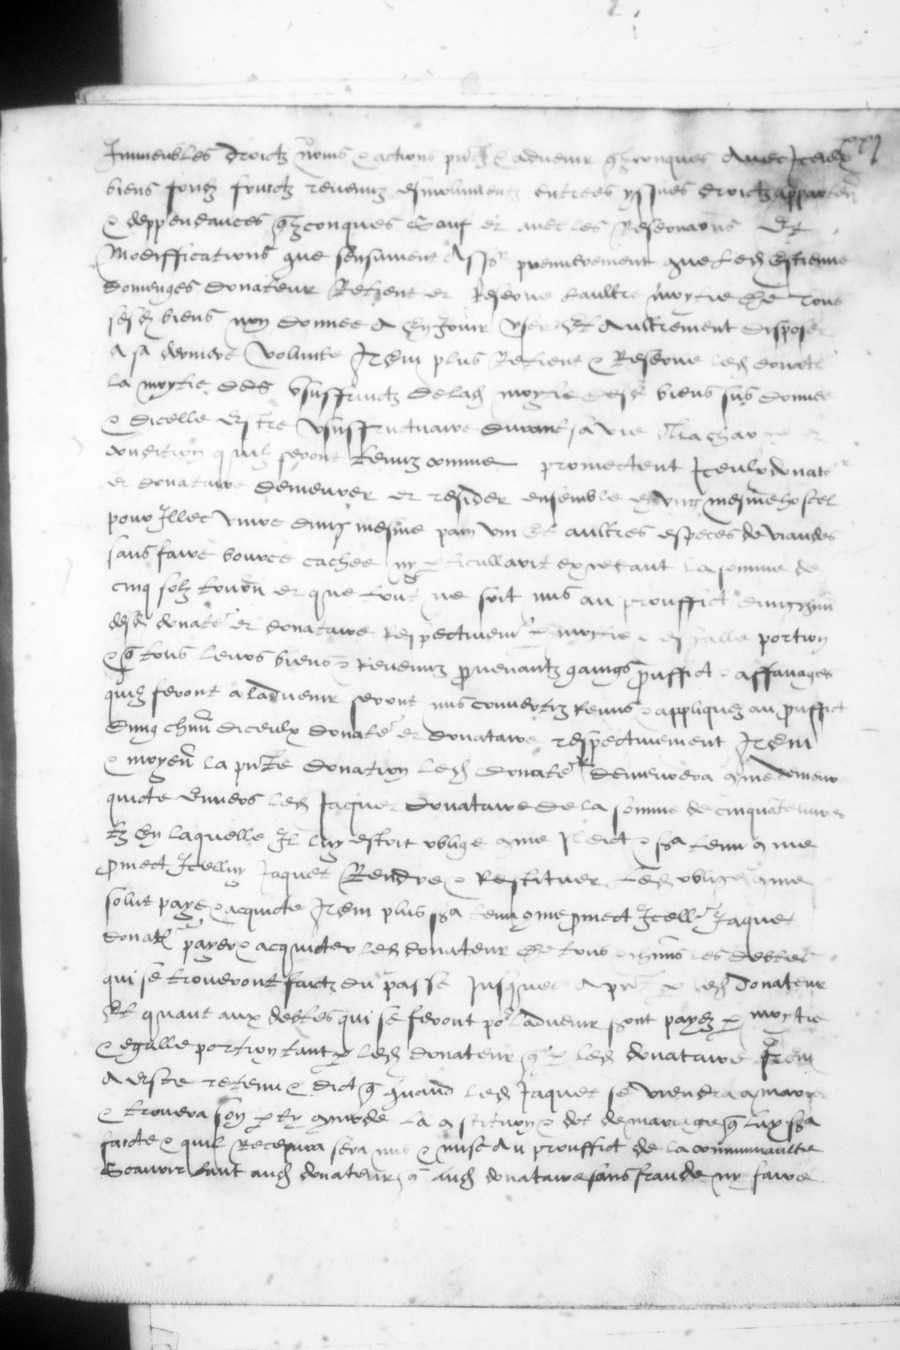 xxj
Immeubles droictz noms & actions pntz & advenir qzconques avec Iceulx
biens fondz fruictz revenuz esmolumentz entrees yssues droictz apparten
& deppendances qzconques Sauf et avec les Reservations Et
Modiffications que sensuivent Assr premierement que led Estienne
domenges donateur Retient et Reserve laultre moytie de tous
sesd biens non donnee a en Jouir User et aultrement disposer
a sa derniere volunte Item plus Retient & Reserve led donatr
la moytie des Usuffruictz de lad moytie desd biens sus donnee
& dicelle Estre Usuffructuaire durant sa vie A la charge et
condition quilz seront tenuz comme promectent Iceulx donatr
et donataire demeurer et resider ensemble en ung mesme hostel
pour Illec vivre dung mesme pain vin et aultres especes de viandes
sans faire bource cachee ny pticulliere excedant la somme de
cinq solz tourn et que tout ne soit mis au prouffict dung chun
desd donatr et donataire Respectivemt p moytie & egalle portion
& q tous leurs biens & Revenuz provenantz gaings prouffict & affanages
quilz feront a ladvenir seront mis convertiz tenus & appliquez au prouffict
dung chun diceulx donatr et donataire respectivement Item
& moyen la pnte donation led donatr demeurera come demeure
quicte Envers led Jaques donataire de la somme de cinquante livres
tz En laquelle Il luy estoit oblige come Il dict & sra tenu come
promect Icelluy Jaques Rendre & Restituer led oblige come
solut paye & acquicte Item plus sra tenu come promect Icellr Jaques
donatr payer & acquicter led donateur de tous & chuns les debtes
qui se trouveront faictz du passe Jusques a pnt led donateur
Et quant aux debtes qui se feront por ladvenir sront payez p moytie
& egalle portion tant p led donateur q p led donataire Item
a este retenu & dict q quand led Jaques se viendra a marier
& trouvera son party comode la constitution & dot de mariage q luy sra
faicte & quil Recepvra sera mis & mise au prouffict de la communaultre
Scavoir tant aud donateur q aud donataire sans fraude ny faire